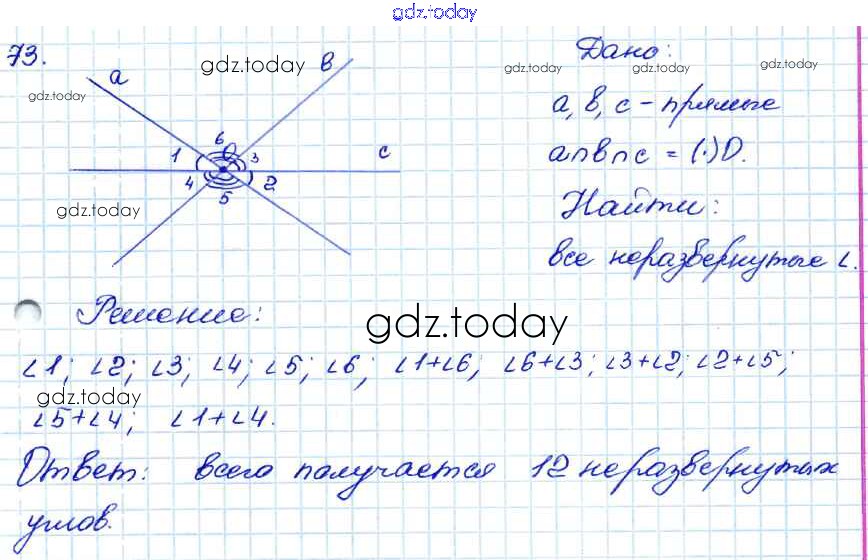 gdz.today
73.
a
gdz.today
в
Дано:
gdz.today
gdz.today
gdz.today
a, в, с - прямые
6
1
3
c
a∩в∩c = (·)О.
4
2
5
gdz.today
Найти:
все неразвернутые ∠.
Решение:
gdz.today
∠1; ∠2; ∠3; ∠4; ∠5; ∠6; ∠1+∠6; ∠6+∠3; ∠3+∠2; ∠2+∠5;
gdz.today
∠5+∠4; ∠1+∠4.
Ответ: всего получается 12 неразвернутых
углов.